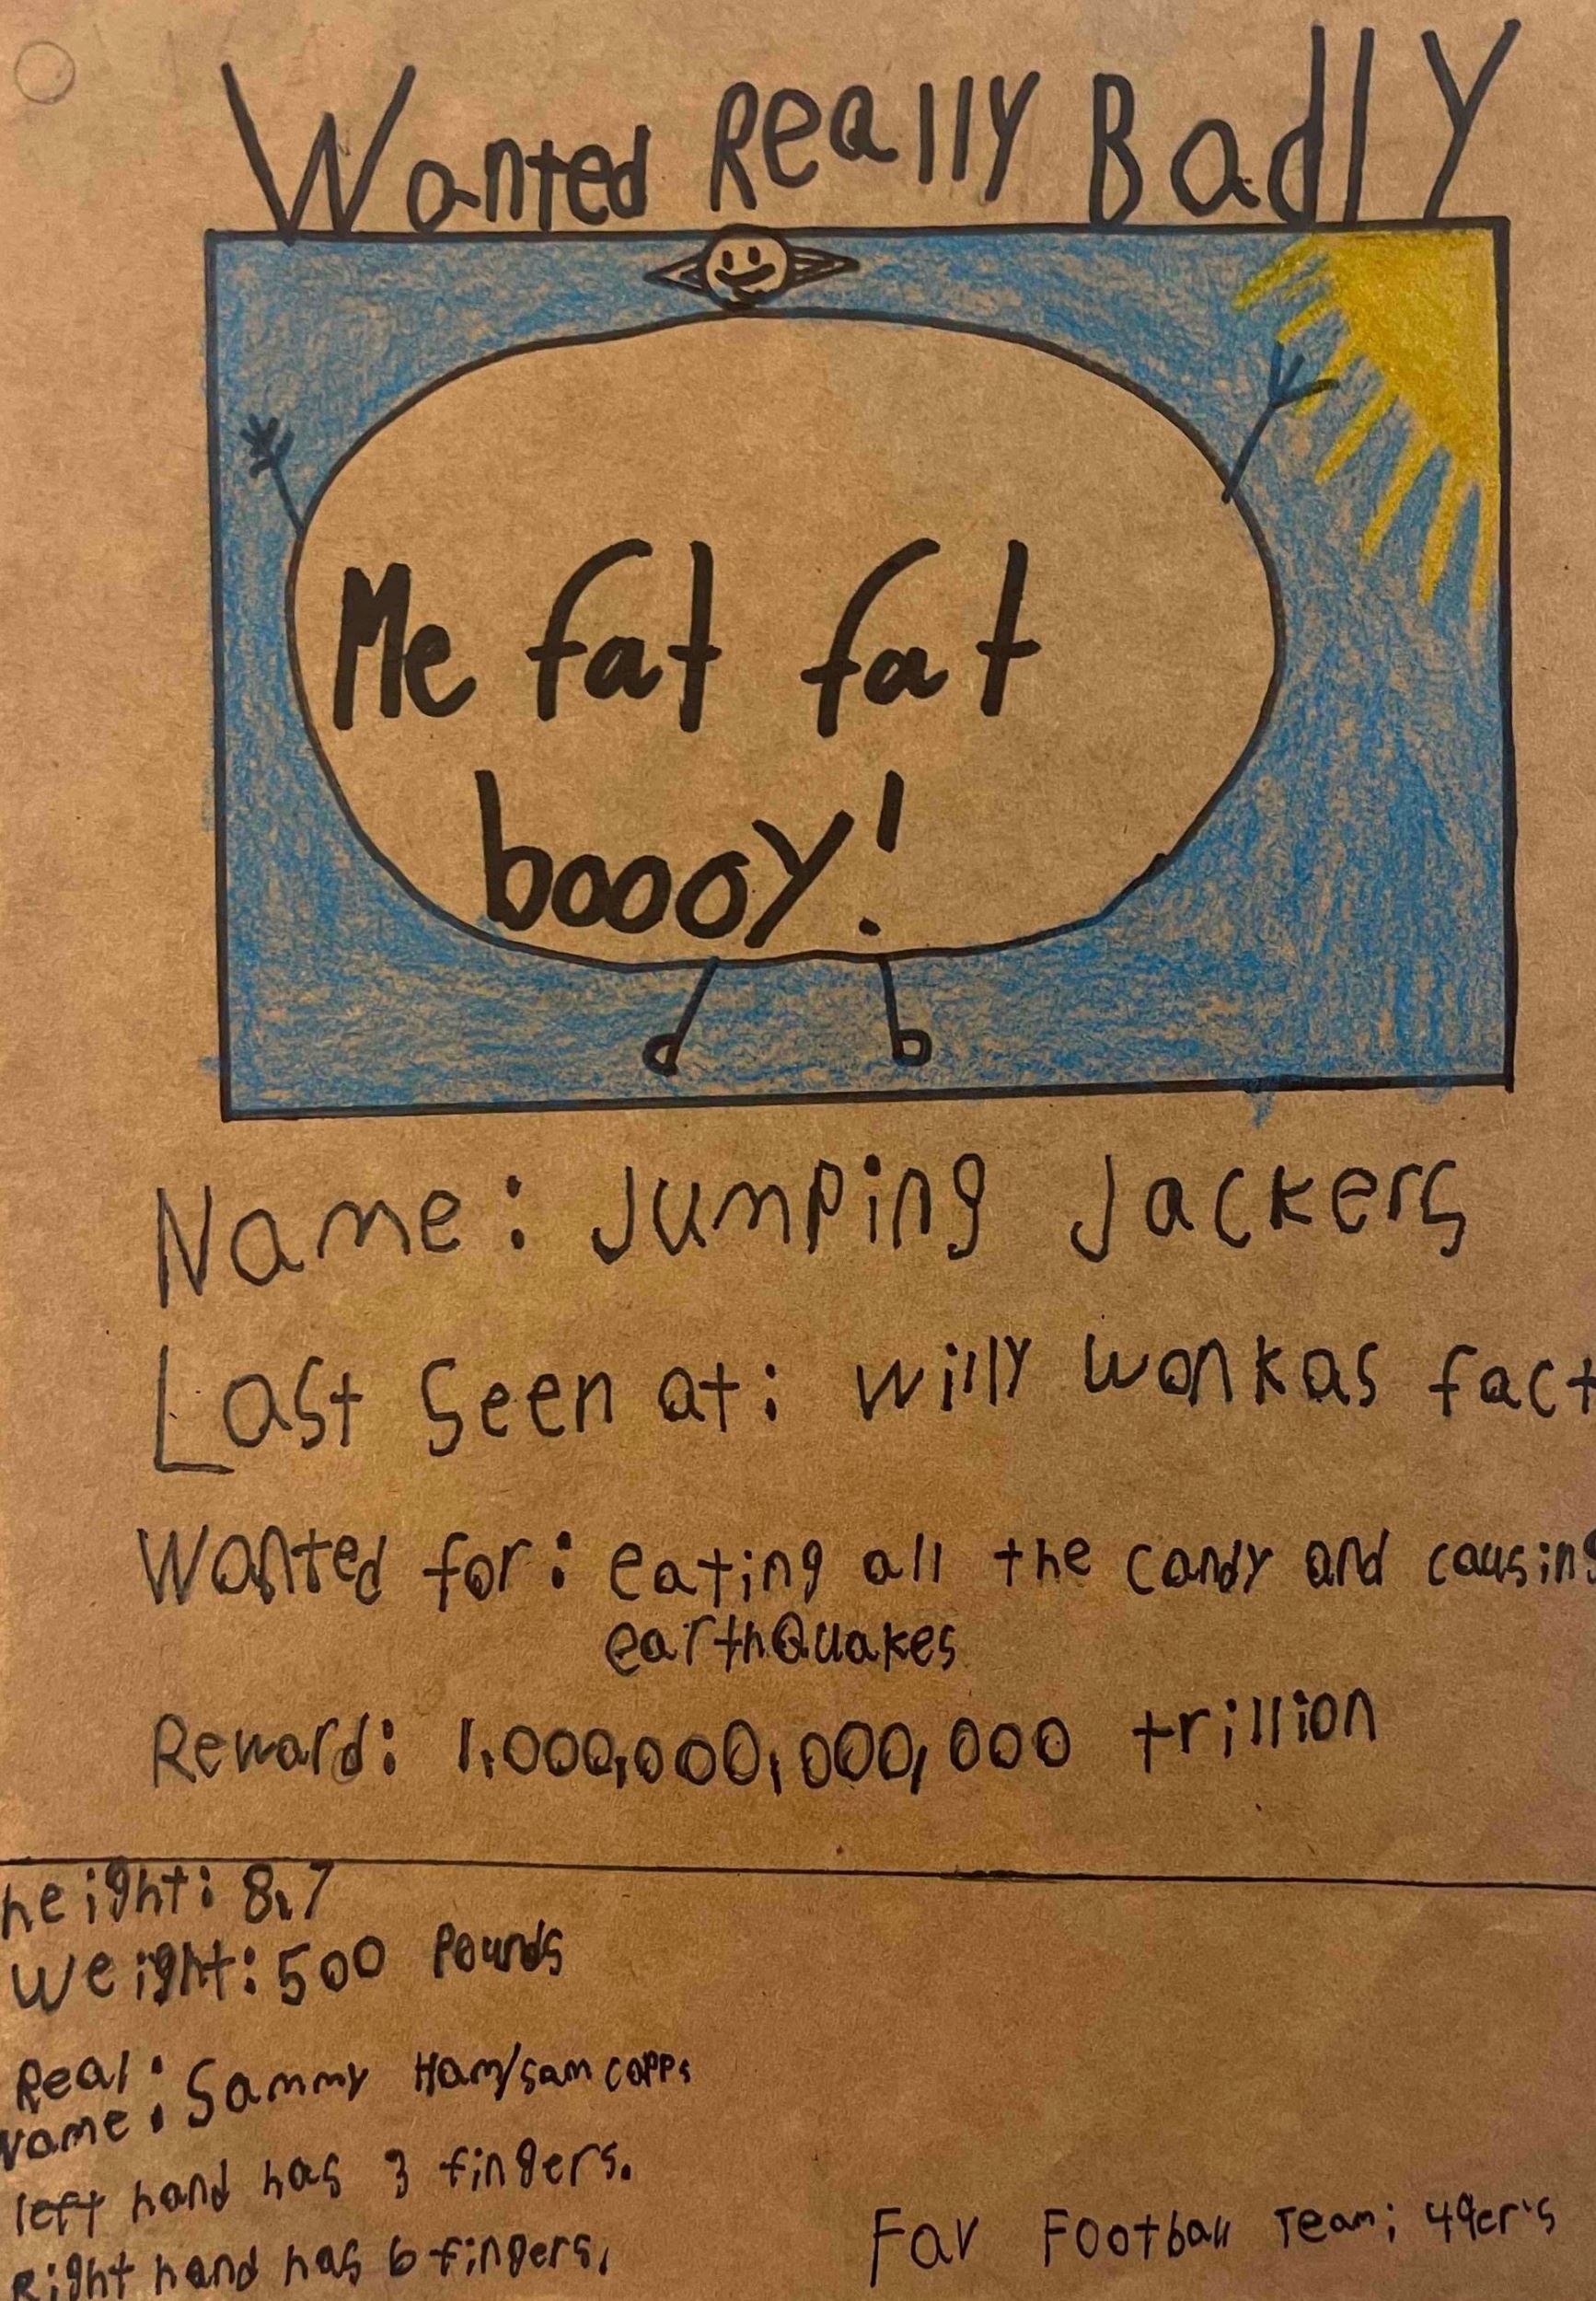 Wanted Really Badly
Me fat fat
boooy!
Name: Jumping Jackers
Last Seen at: willy wonkas fact
Wanted for: eating all the candy and causing
earthquakes
Reward: 1,000,000,000,000 trillion
height: 8,7
weight: 500 Pounds
Real
Name: Sammy Ham/Sam copps
left hand has 3 fingers.
Right hand has 6 fingers.
Fav Football Team: 49er's